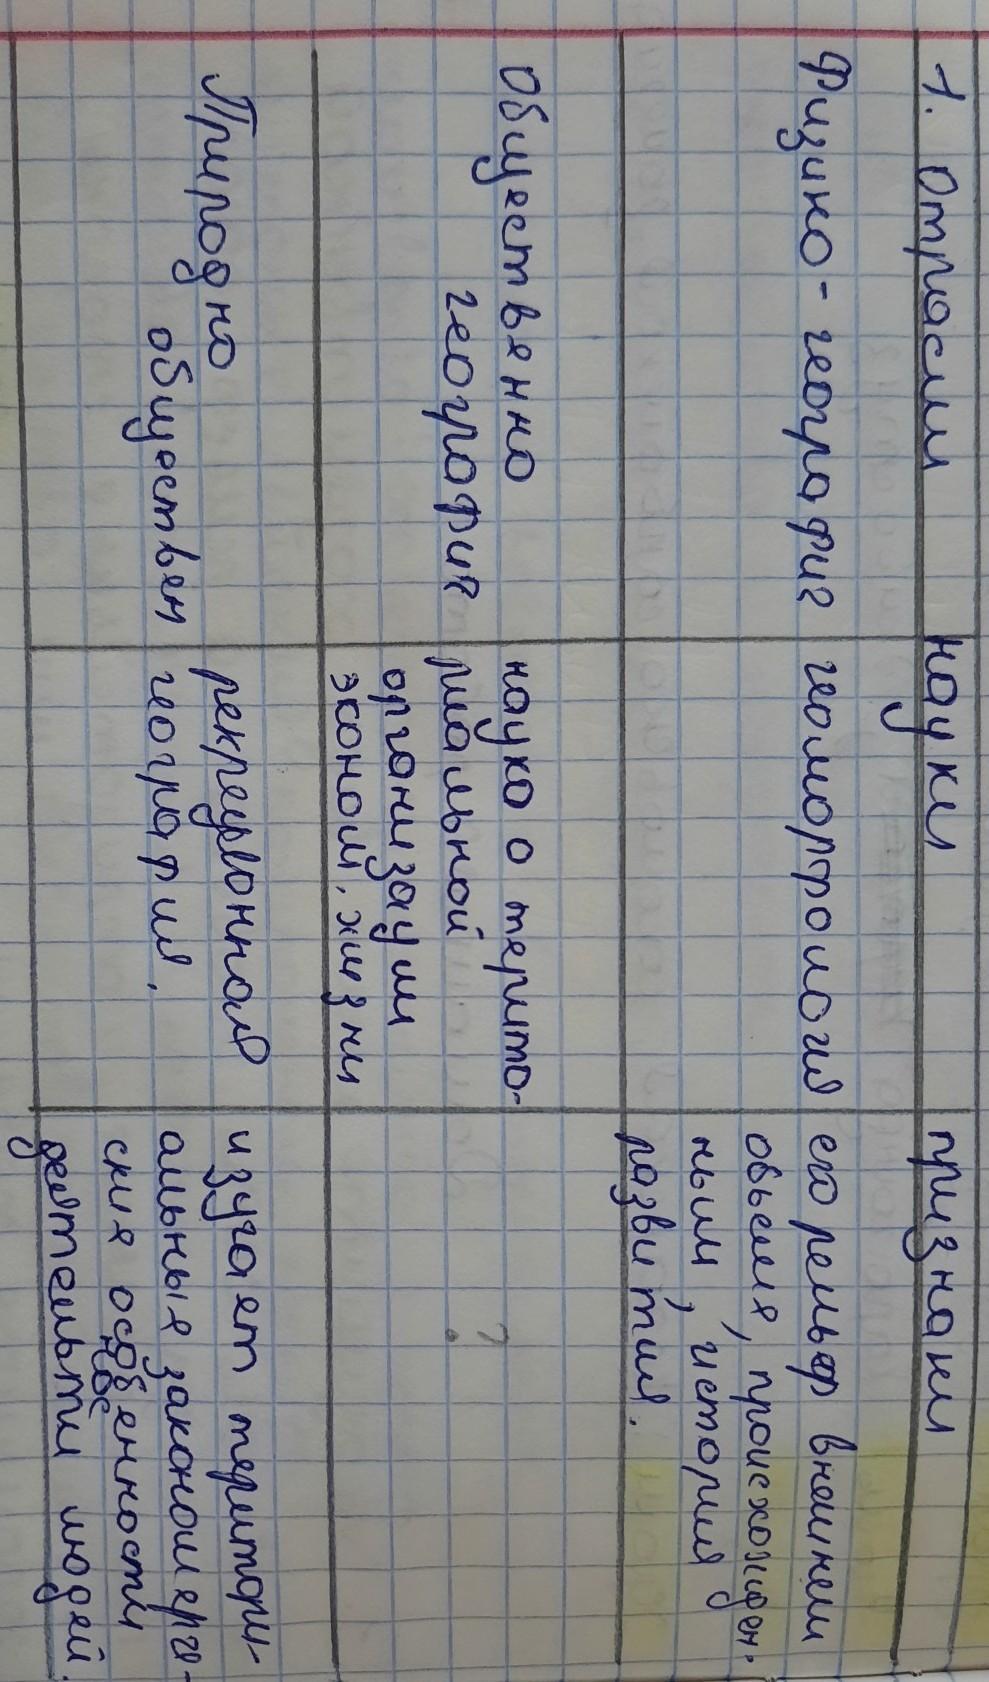 1. Отрасли науки признаки
Физико-географиг геоморфология его рельеф внешнем
обьеме, происхожден.
ным, история
развития.
Обществьенно
географиг
науко о террито-
риальной
организации
эконом. жизни
?
Природно
обществен
рекреционноя
география.
изучает территори-
альные закономерге-
ские особенности
деятельти людей.
нос